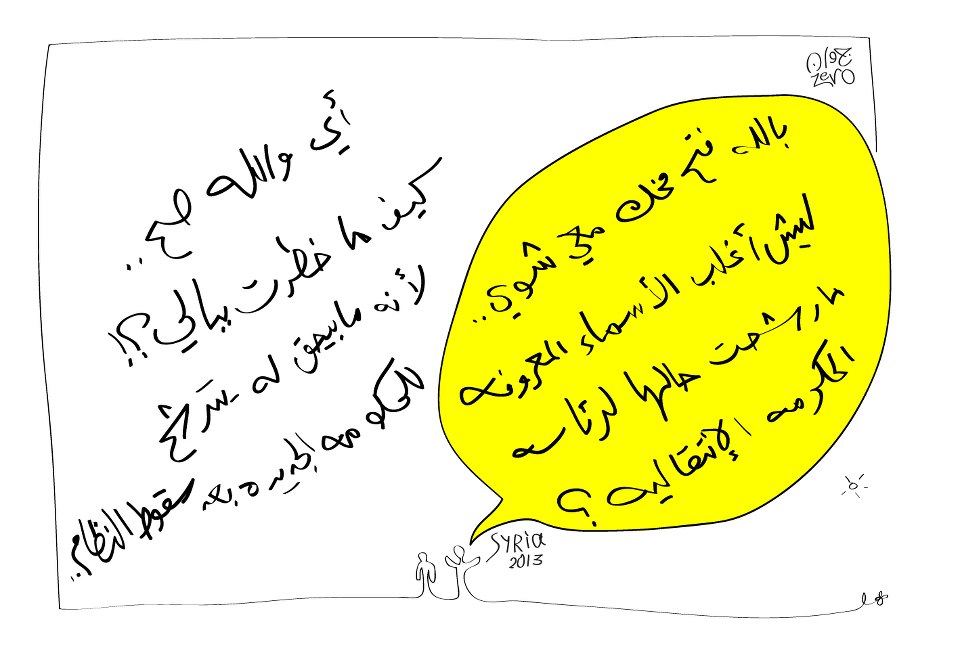 جوان
zero
بالله فتح مخك معي شوي..
ليش أغلب الأسماء المعروفه
ما رشحت حالها لرئاسه
الحكومه الإنتقاليه ؟
أي والله صح..
كيف ما خطرت ببالي؟!
لأنه ما بيحق له يترشح
للحكومه الجديده بعد سقوط النظام..
SYRIA
2013